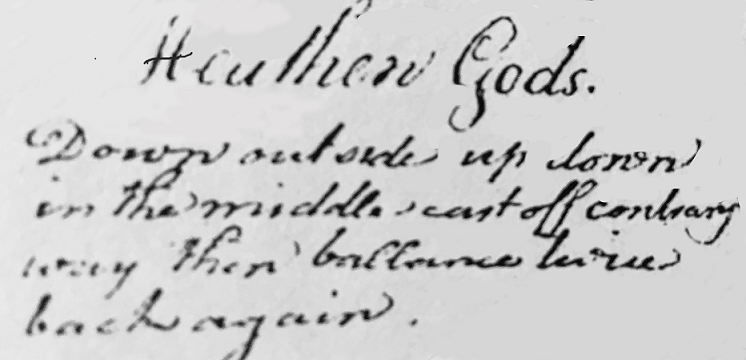 Heathen Gods.
Down outside up down
in the middle cast off contrary
way then ballance twice
back again.